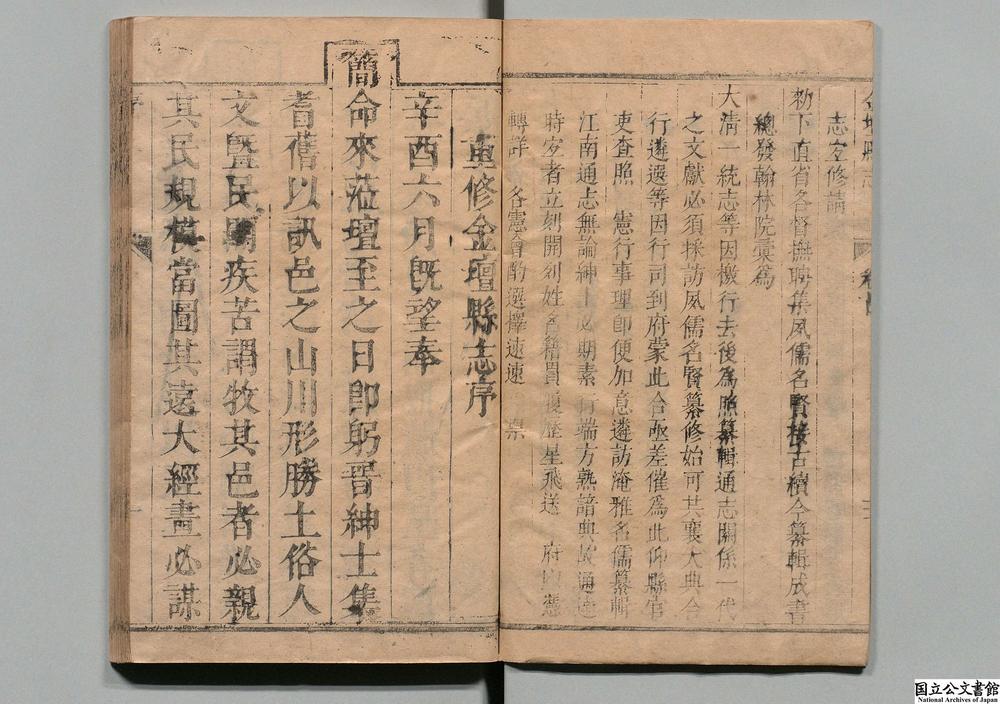 志定修請
勑下直省各督撫聘集夙儒名賢接古續今纂輯成書
總發翰林院彙爲
大清一統志等因檄行去後爲照纂輯通志關係一代
之文獻必須採訪夙儒名賢纂修始可共襄大典合
行遴選等因行司到府蒙此合亟差催爲此仰縣官
吏查照 憲行事理卽便加意遴訪淹雅名儒纂輯
江南通志無論紳士必期素行端方熟諳典故通達
時宜者立刻開列姓名籍貫履歷星飛送 府以憑
轉詳 各憲會酌選擇速速 稟
重修金壇縣志序
辛酉六月旣望奉
簡命來蒞壇至之日卽躬晋紳士集
耆舊以訊邑之山川形勝土俗人
文曁民間疾苦謂牧其邑者必親
其民規模當圖其遠大經畫必謀
国立公文書館
National Archives of Japan